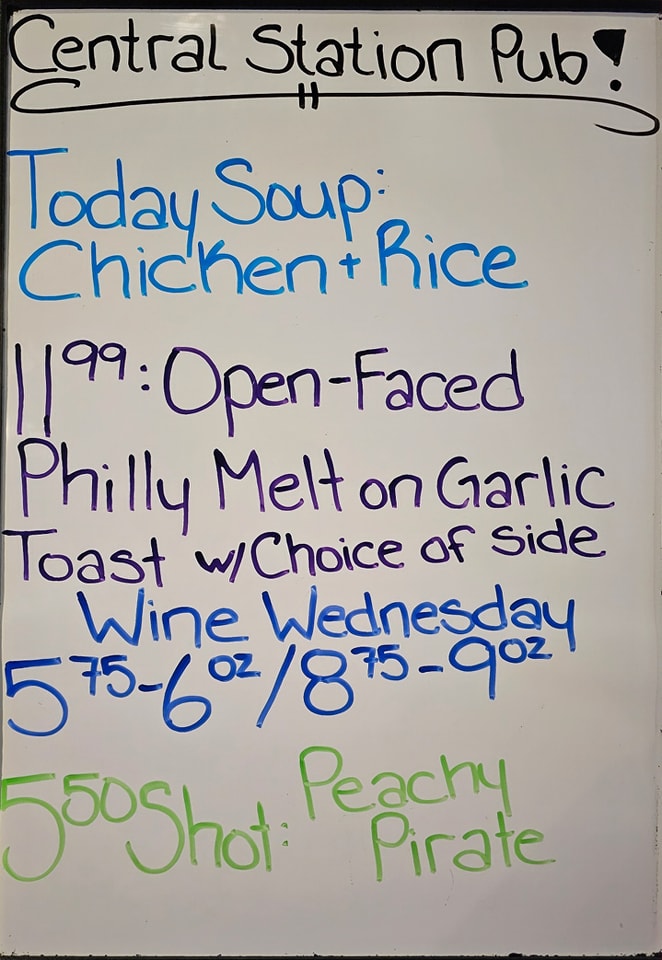 Central Station Pub!
Today Soup:
Chicken + Rice
11⁹⁹: Open-Faced
Philly Melt on Garlic
Toast w/Choice of side
Wine Wednesday
5⁷⁵-6ᵒᶻ/8⁷⁵-9ᵒᶻ
5⁵⁰ Shot: Peachy
Pirate